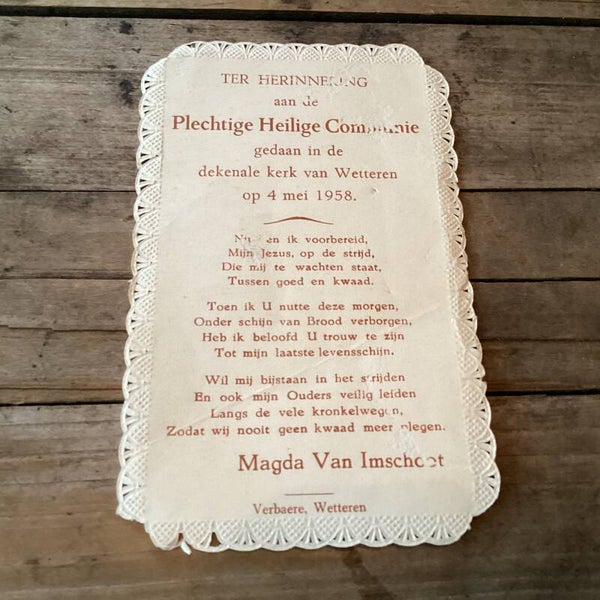 TER HERINNERING
aan de
Plechtige Heilige Communie
gedaan in de
dekenale kerk van Wetteren
op 4 mei 1958.
Nu ben ik voorbereid,
Mijn Jezus, op de strijd,
Die mij te wachten staat,
Tussen goed en kwaad.
Toen ik U nutte deze morgen,
Onder schijn van Brood verborgen,
Heb ik beloofd U trouw te zijn
Tot mijn laatste levensschijn.
Wil mij bijstaan in het strijden
En ook mijn Ouders veilig leiden
Langs de vele kronkelwegen,
Zodat wij nooit geen kwaad meer plegen.
Magda Van Imschoot
Verbaere, Wetteren